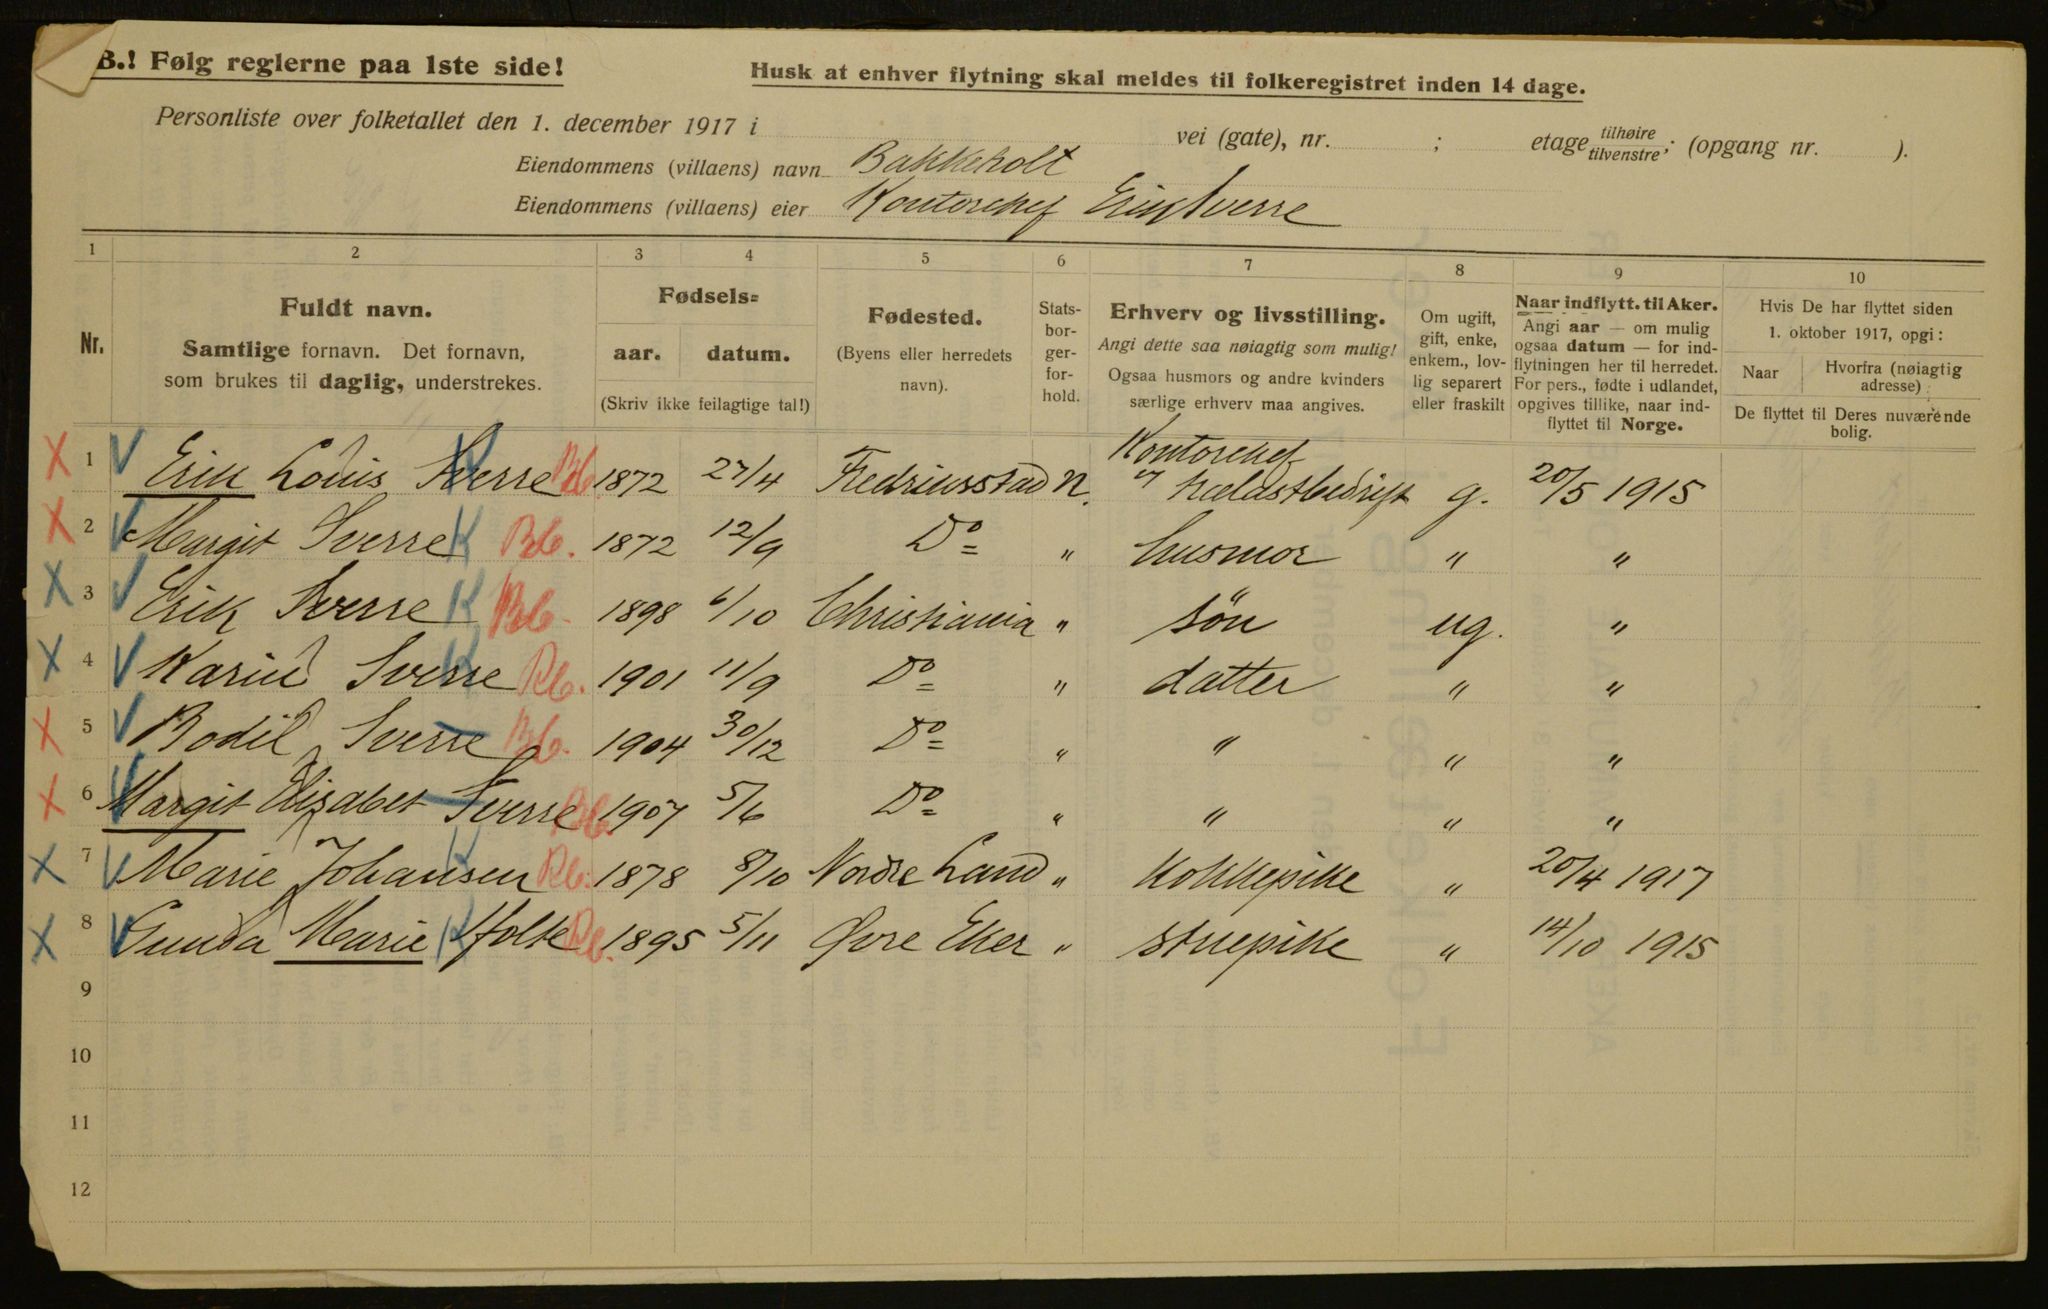 B.! Følg reglerne paa 1ste side!
Husk at enhver flytning skal meldes til folkeregistret inden 14 dage.
Personliste over folketallet den 1. december 1917 i vei (gate), nr. ; etage tilhøire tilvenstre; (opgang nr. ).
Eiendommens (villaens) navn Bakkeholt
Eiendommens (villaens) eier Kontorchef Erik Sverre
1 2 3 4 5 6 7 8 9 10
Nr.
Fuldt navn.
Samtlige fornavn. Det fornavn,
som brukes til daglig, understrekes.
Fødsels=
aar. datum.
(Skriv ikke feilagtige tal!)
Fødested.
(Byens eller herredets
navn).
Stats-
bor-
ger-
for-
hold.
Erhverv og livsstilling.
Angi dette saa nøiagtig som mulig!
Ogsaa husmors og andre kvinders
særlige erhverv maa angives.
Om ugift,
gift, enke,
enkem., lov-
lig separert
eller fraskilt
Naar indflytt. til Aker.
Angi aar — om mulig
ogsaa datum — for ind-
flytningen her til herredet.
For pers., fødte i udlandet,
opgives tillike, naar ind-
flyttet til Norge.
Hvis De har flyttet siden
1. oktober 1917, opgi:
Naar Hvorfra (nøiagtig
adresse)
De flyttet til Deres nuværende
bolig.
Kontorchef
X 1 Erik Louis Sverre 1872 27/4 Fredriksstad N. Trælastbedrift g. 20/5 1915
X 2 Margit Sverre K 1872 12/9 Do " husmor " "
X 3 Erik Sverre K 1898 6/10 Christiania " søn ug. "
X 4 Karin Sverre K 1901 11/9 Do " datter " "
X 5 Bodil Sverre 1904 30/12 Do " " " "
X 6 Margit Elisabet Sverre 1907 5/6 Do " " " "
X 7 Marie Johansen K 1878 8/10 Nordre Land " Kokkepike " 20/4 1917
X 8 Gunda Marie Holte K 1895 5/11 Øvre Eker " stuepike " 14/10 1915
9
10
11
12